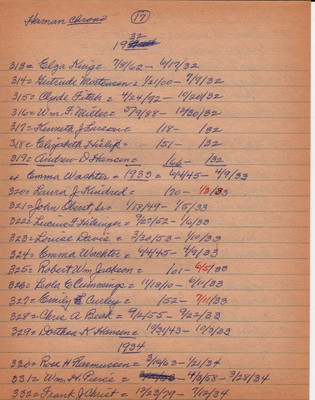 Haman Chrono (17)
1932
313 = Elza King = 7/8/62 - 4/17/32
314 = Gertrude Mortensen = 1/21/00 - 7/9/32
315 = Clyde Fitch = 4/24/92 - 10/20/32
316 = Wm. F. Miller = 5/29/88 - 12/30/32
317 = Kenneth J. Larson = 118 - /32
318 = Elizabeth = 151 - /32
319 = Andrew D. Hansen = 166 - /32
1933
Emma Wachter = 4/4/45 - 4/9/33
320 = Laura J. Kindred = 120 - 1/3/33
321 = John Oberst, Sr = 1/18/49 - 1/5/33
322 = Lucius F. = 9/27/52 - 1/6/33
323 = Louise Davie = 3/20/53 - 1/10/33
324 = Emma Wachter = 4/4/45 - 4/9/33
325 = Robert Wm. Jackson = 101 - 6/5/33
326 = Leola E. Cummings = 11/13/10 - 6/11/33
327 = Emily E. Curley = 152 - 7/11/33
328 = Chris A. Beck = 9/6/55 - 9/22/33
329 = Dorthea K. Hansen = 10/31/43 - 10/3/33
1934
330 = Rose H. Rasmussen = 3/19/63 - 1/21/34
331 = Wm. H. Pierce = 4/3/58 - 3/28/34
332 = Frank J. Christ = 10/23/79 - 7/12/34